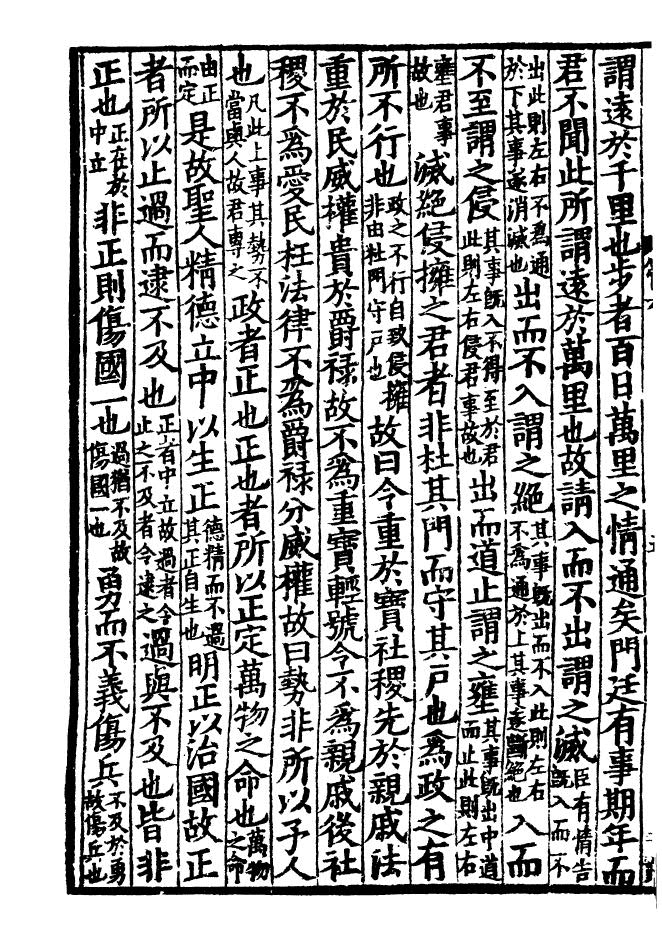 謂遠於千里也步者百日萬里之情通矣門廷有事期年而
君不聞此所謂遠於萬里也故請入而不出謂之滅臣有情告既入而不
出此則左右不爲通於下其事遂消滅也出而不入謂之絕其事既出而不入此則左右不爲通於上其事遂斷絕也入而
不至謂之侵其事既入不得至於君此則左右侵君事故也出而道止謂之壅其事既出中道而止此則左右
壅君事故也滅絕侵擁之君者非杜其門而守其戶也爲政之有
所不行也政之不行自致侵擁非由杜門守戶也故曰令重於寶社稷先於親戚法
重於民威權貴於爵祿故不爲重寶輕號令不爲親戚後社
稷不爲愛民枉法律不爲爵祿分威權故曰勢非所以予人
也凡此上事其勢不當與人故君專之政者正也正也者所以正定萬物之命也萬物之命
由正而定是故聖人精德立中以生正德精而不過其正自生也明正以治國故正
者所以止過而逮不及也正者中立故過者舍止之不及者令逮之過與不及也皆非
正也正在於中立非正則傷國一也過猶不及故傷國一也勇而不義傷兵不及於勇故傷兵也